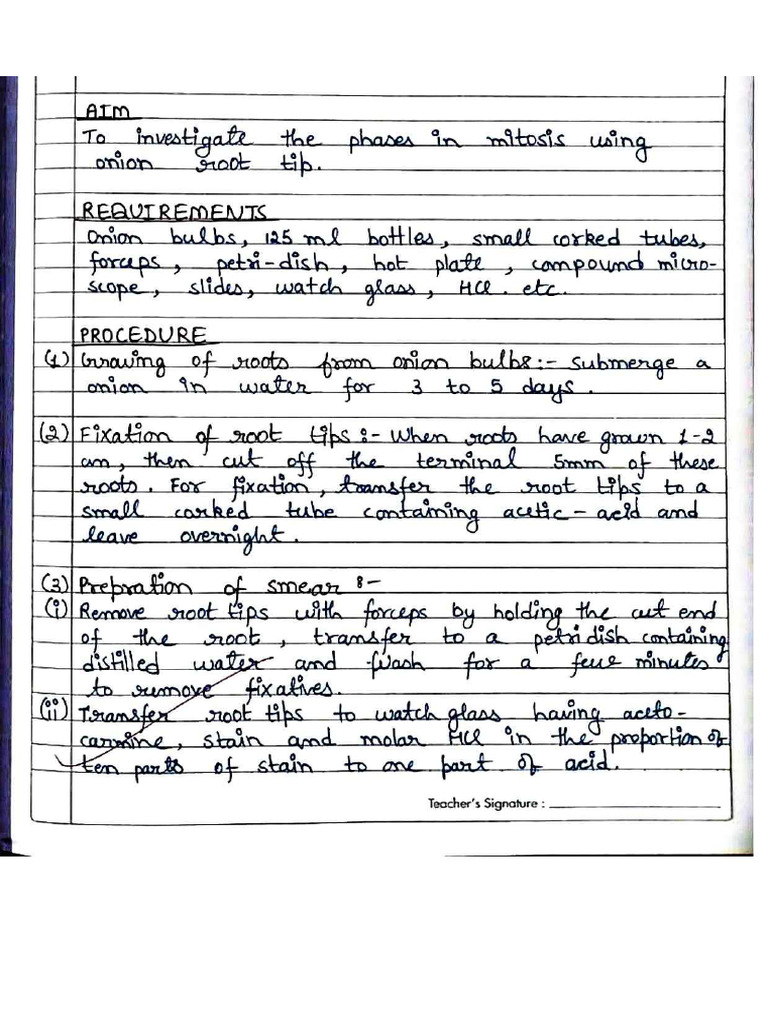 AIM
To investigate the phases in mitosis using
onion root tip.
REQUIREMENTS
Onion bulbs, 125 ml bottles, small corked tubes,
forceps, petri-dish, hot plate, compound micro-
scope, slides, watch glass, HCl. etc.
PROCEDURE
(1) Growing of roots from onion bulbs:- Submerge a
onion in water for 3 to 5 days.
(2) Fixation of root tips:- When roots have grown 1-2
cm, then cut off the terminal 5mm of these
roots. For fixation, transfer the root tips to a
small corked tube containing acetic-acid and
leave overnight.
(3) Prepration of smear:-
(i) Remove root tips with forceps by holding the cut end
of the root, transfer to a petri dish containing
distilled water and wash for a few minutes
to remove fixatives.
(ii) Transfer root tips to watch glass having aceto-
carmine, stain and molar HCl in the proportion of
ten parts of stain to one part of acid.
Teacher's Signature : ____________